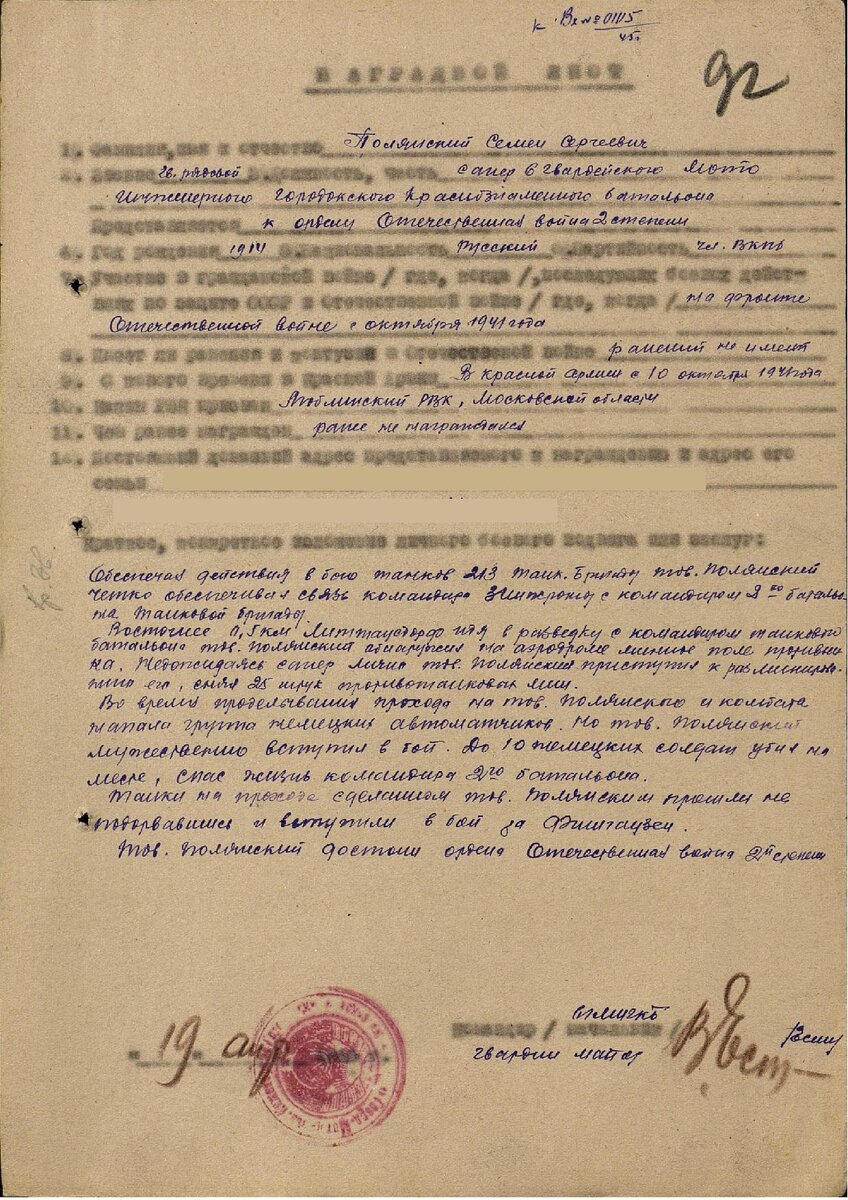 к Вх № 01115
45г
92
НАГРАДНОЙ ЛИСТ
1. Фамилия, имя и отчество Полянский Семен Сергеевич
2. Звание гв. рядовой 3. Должность, часть сапер 6 Гвардейского Мото
Инженерного Городокского Краснознаменного батальона
Представляется к ордену Отечественная война 2 степени
4. Год рождения 1911 5. Национальность Русский 6. Партийность чл. ВКПб
7. Участие в гражданской войне / где, когда /, последующих боевых дейст-
виях по защите СССР и Отечественной войне / где, когда / На фронте
Отечественной войне с октября 1941 года
8. Имеет ли ранения и контузии в Отечественной войне ранений не имеет
9. С какого времени в Красной Армии В красной армии с 10 октября 1941 года
10. Каким РВК призван Люблинский РВК, Московской области
11. Чем ранее награжден ранее не награждался
12. Постоянный домашний адрес представляемого к награждению и адрес его
семьи
Краткое, конкретное изложение личного боевого подвига или заслуг:
Обеспечая действия в бою танков 213 танк. Бригады тов. Полянский
четко обеспечивая связь командира с командиром 2го батальо-
на танковой бригады.
Восточнее 0,5 км идя в разведку с командиром танкового
батальона тов. Полянский обнаружил на аэродроме минное поле противни-
ка. Недожидаясь сапер лично тов. Полянский приступил к разминирова-
нию его, снял 25 штук противотанковых мин.
Во время проделывания прохода на тов. Полянского и комбата
напала группа немецких автоматчиков. Но тов. Полянский
мужественно вступил в бой. До 10 немецких солдат убил на
месте, спас жизнь командира 2го батальона.
Танки на проходе сделанном тов. Полянским прошли не
подорвавшись и вступили в бой за Фишгаузен.
Тов. Полянский достоин ордена Отечественная война 2й степени
"19" апр
Командир / начальник /
гвардии майор